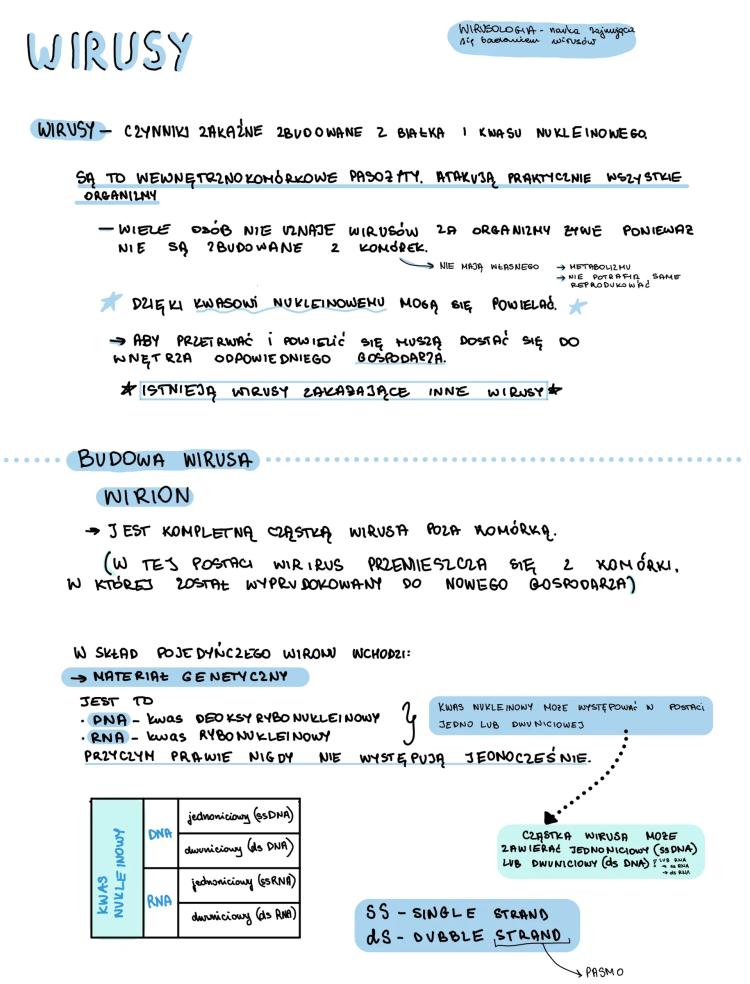 WIRUSY
WIRUSOLOGIA - nauka zajmująca
się badaniem wirusów
WIRUSY – CZYNNIKI ZAKAŹNE ZBUDOWANE Z BIAŁKA I KWASU NUKLEINOWEGO.
SĄ TO WEWNĘTRZNOKOMÓRKOWE PASOŻYTY. ATAKUJĄ PRAKTYCZNIE WSZYSTKIE
ORGANIZMY
— WIELE OSÓB NIE UZNAJE WIRUSÓW ZA ORGANIZMY ŻYWE PONIEWAŻ
NIE SĄ ZBUDOWANE Z KOMÓREK.
→ NIE MAJĄ WŁASNEGO → METABOLIZMU
→ NIE POTRAFIĄ SAME
REPRODUKOWAĆ
★ DZIĘKI KWASOWI NUKLEINOWEMU MOGĄ SIĘ POWIELAĆ. ★
→ ABY PRZETRWAĆ I POWIELIĆ SIĘ MUSZĄ DOSTAĆ SIĘ DO
WNĘTRZA ODPOWIEDNIEGO GOSPODARZA.
★ ISTNIEJĄ WIRUSY ZAKAŻAJĄCE INNE WIRUSY ★
BUDOWA WIRUSA
WIRION
→ JEST KOMPLETNĄ CZĄSTKĄ WIRUSA POZA KOMÓRKĄ.
(W TEJ POSTACI WIRIRUS PRZEMIESZCZA SIĘ Z KOMÓRKI,
W KTÓREJ ZOSTAŁ WYPRUDOKOWANY DO NOWEGO GOSPODARZA)
W SKŁAD POJEDYŃCZEGO WIRONU WCHODZI:
→ MATERIAŁ GENETYCZNY
JEST TO
· DNA – KWAS DEOKSYRYBONUKLEINOWY
· RNA – KWAS RYBONUKLEINOWY
KWAS NUKLEINOWY MOŻE WYSTĘPOWAĆ W POSTACI
JEDNO LUB DWUNICIOWEJ
PRZYCZYM PRAWIE NIGDY NIE WYSTĘPUJĄ JEDNOCZEŚNIE.
KWAS
NUKLEINOWY
DNA
jednoniciowy (ssDNA)
dwuniciowy (ds DNA)
RNA
jednoniciowy (ssRNA)
dwuniciowy (ds RNA)
CZĄSTKA WIRUSA MOŻE
ZAWIERAĆ JEDNONICIOWY (ssDNA)
LUB DWUNICIOWY (ds DNA)
LUB RNA
→ ss RNA
→ ds RNA
SS – SINGLE STRAND
dS – DUBBLE STRAND
→ PASMO